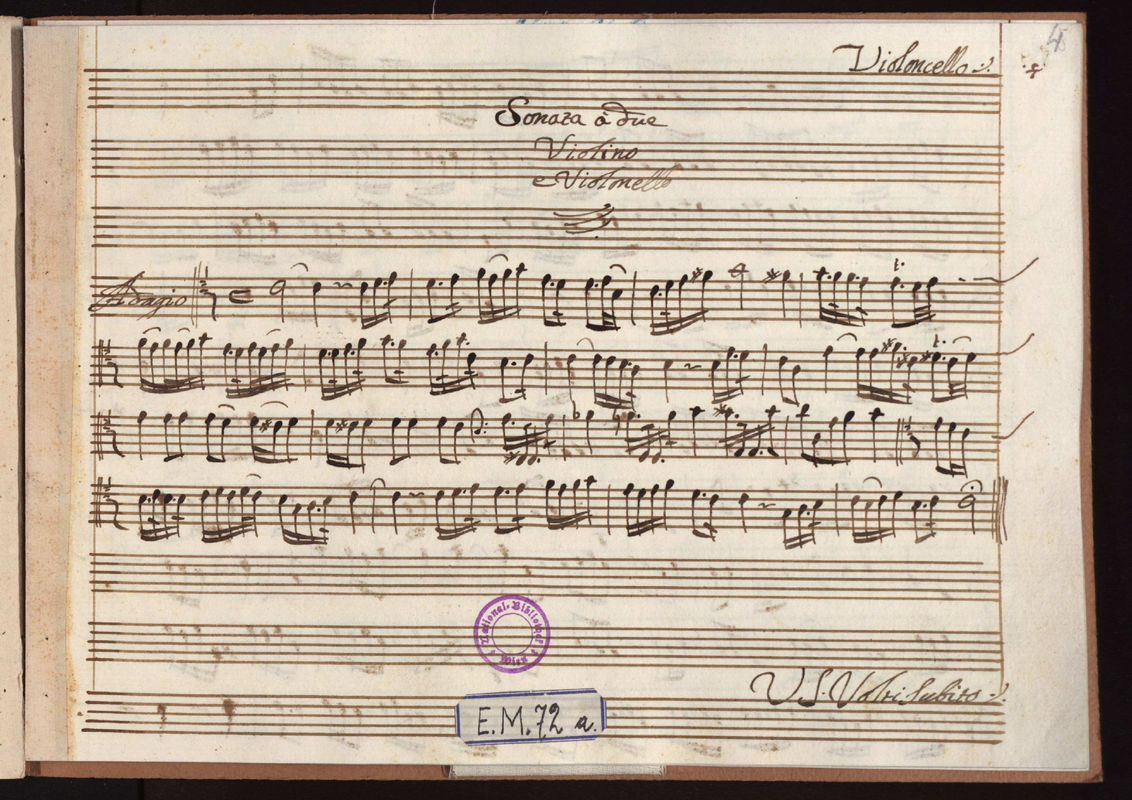 4
Violoncello
Sonata à due
Violino
e Violoncello
Adagio
National-Bibliothek
Wien
V.S. Volti Subito
E.M.72 a.